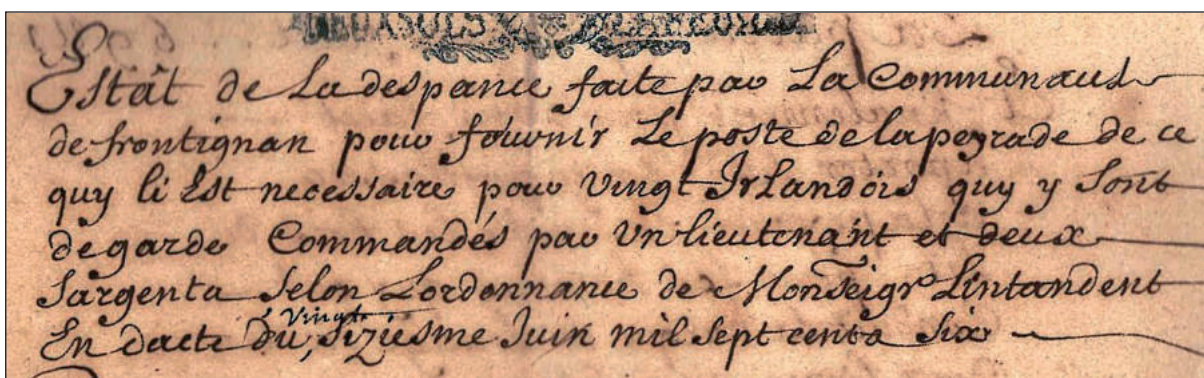 Estat de La despance faite par La Communauté
de frontignan pour fournir Le poste de lapeyrade de ce
quy li Est necessaire pour vingt Irlandois quy y sont
de garde Commandés par Un lieutenant et deux
Sargents selon Lordonnance de Monseigr Lintandent
vingt
En dacte du, siziesme Juin mil sept cents six